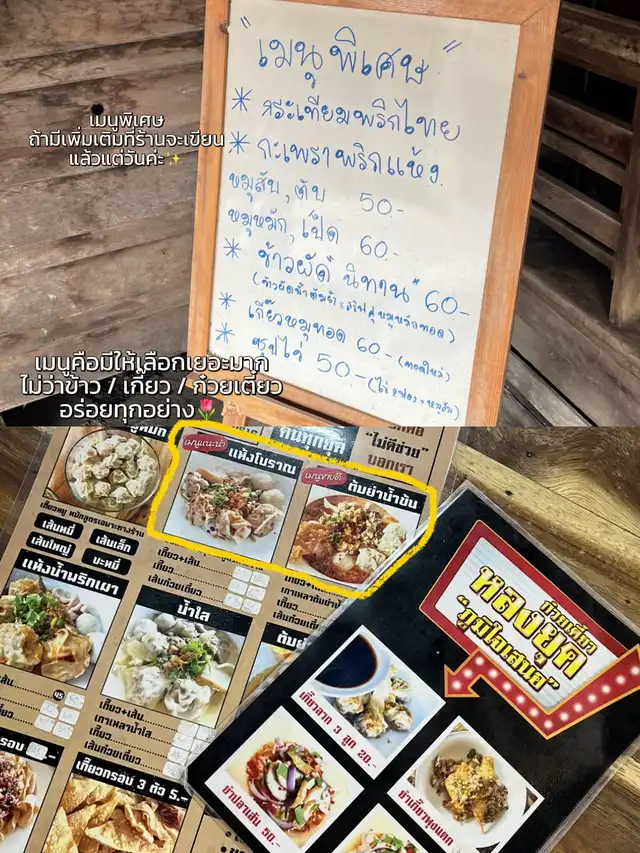 "เมนูพิเศษ"
* กระเทียมพริกไทย
* กะเพราพริกแห้ง
หมูสับ, ตับ 50.-
หมูหมัก, เป็ด 60.-
* ข้าวผัด "นิทาน" 60.-
* เกี๊ยวหมูทอด 60.- (ทอดใหม่)
* ซุปไก่ 50.-
เมนูพิเศษ
ถ้ามีเพิ่มเติมที่ร้านจะเขียน
แล้วแต่วันค่ะ✨
เมนูคือมีให้เลือกเยอะมาก
ไม่ว่าข้าว / เกี๊ยว / ก๋วยเตี๋ยว
อร่อยทุกอย่าง🌷
เมนูแนะนำ
แห้งโบราณ
เมนูขายดี
ต้มยำน้ำข้น
"ไม่ดีช่วย"
บอกเรา
เกี๊ยวหมู หมักสูตรเฉพาะทางร้าน
เส้นหมี่ เส้นเล็ก
เส้นใหญ่ บะหมี่
แห้งน้ำพริกเผา
น้ำใส
ต้มยำ
เกี๊ยว+เส้น
เกี๊ยว
เส้นก๋วยเตี๋ยว
เกี๊ยว+เส้น
เกาเหลาต้มยำ
เกี๊ยว
เส้นก๋วยเตี๋ยว
เกี๊ยว+เส้น
เกาเหลาน้ำใส
เกี๊ยว
เส้นก๋วยเตี๋ยว
45
เกี๊ยวกรอบ 3 ตัว 5.-
ก๋วยเตี๋ยว
หลงยุค
"ภูมิใจเสนอ"
เกี๊ยวลวก 3 ลูก 20.-
ยำปลาเส้น 50.-